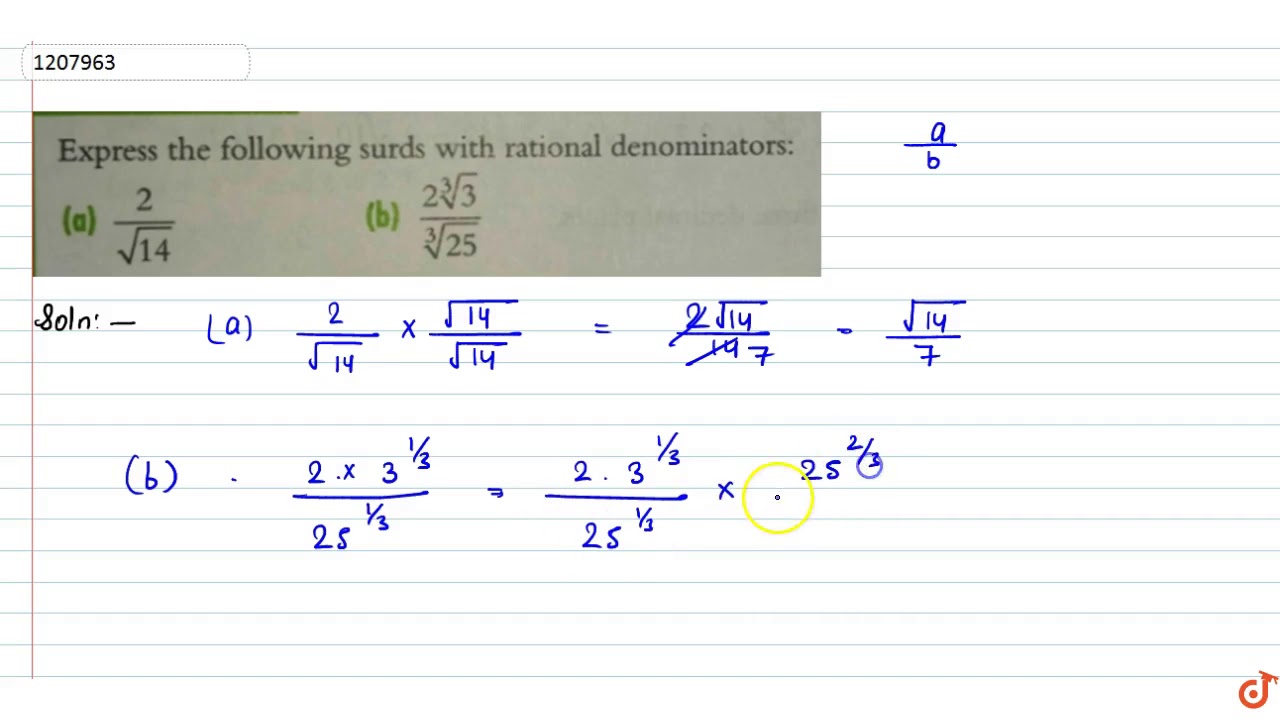 1207963
Express the following surds with rational denominators:
(a) 2/√14 (b) 2∛3/∛25
a/b
Soln: — (a) 2/√14 × √14/√14 = 2√14/14 7 - √14/7
(b) . 2 . × 3^1/3 / 25^1/3 = 2 . 3^1/3 / 25^1/3 × 25^2/3